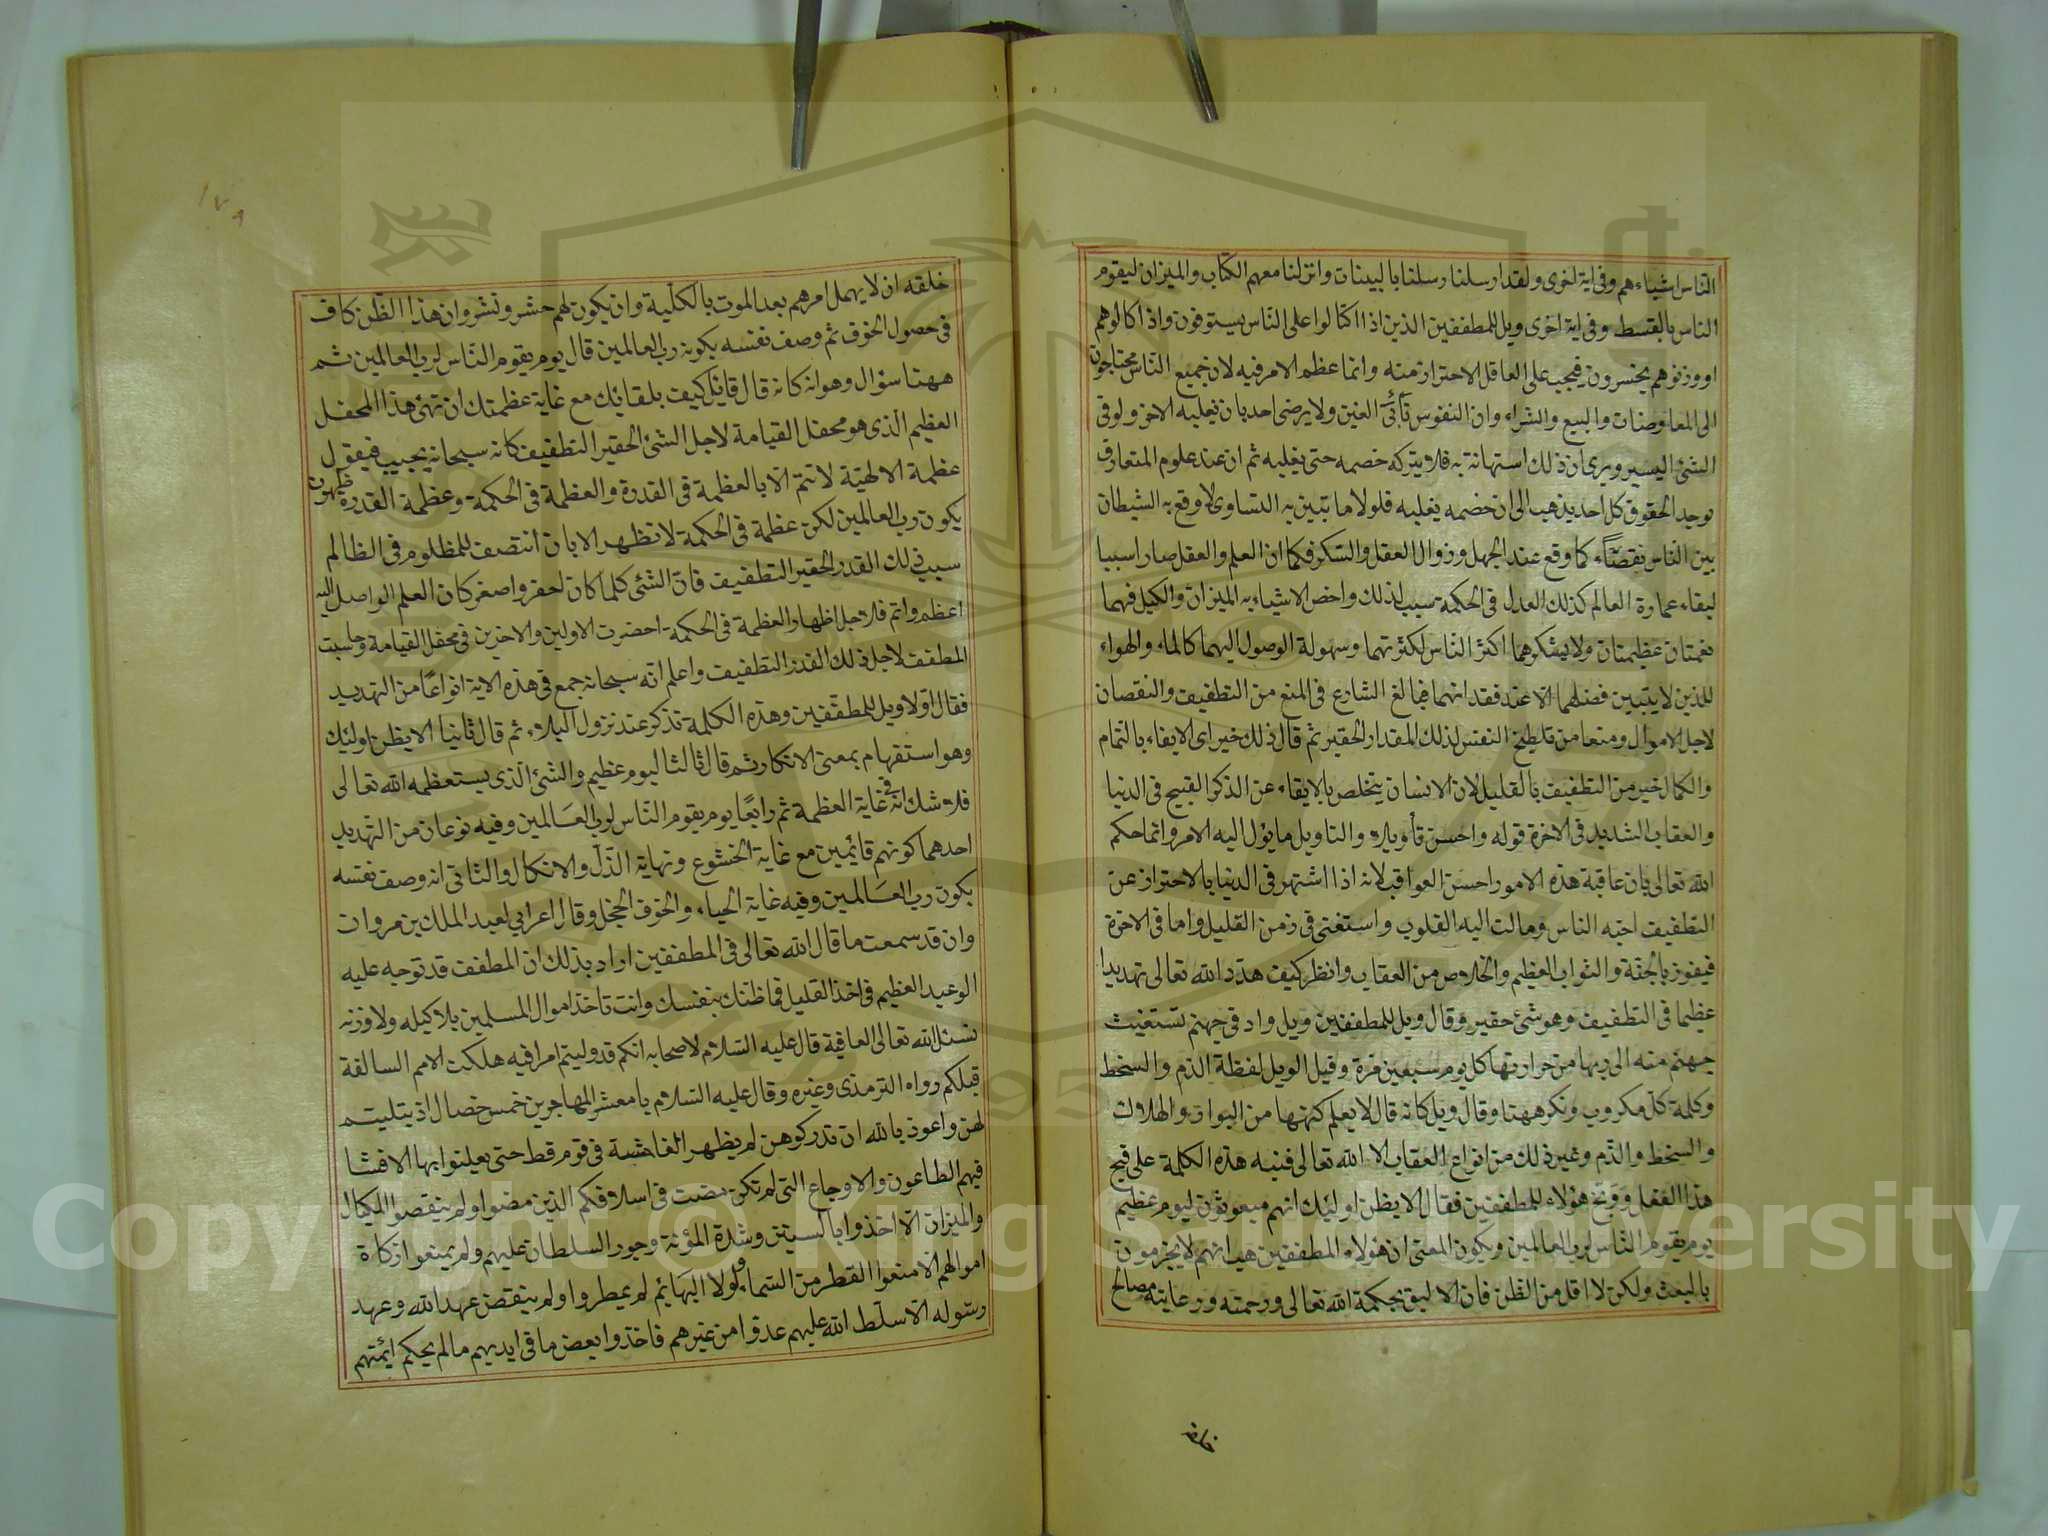 الناس اشياءهم وفى اية اخرى ولقد ارسلنا رسلنا بالبينات وانزلنا معهم الكتاب والميزان ليقوم
الناس بالقسط وفى اية اخرى ويل للمطففين الذين اذا اكتالوا على الناس يستوفون واذا كالوهم
او وزنوهم يخسرون فيجب على العاقل الاحتراز منه وانما عظم الامر فيه لان جميع الناس محتاجون
الى المعاوضات والبيع والشراء وان النفوس تأبى الغبن ولا يرضى احد بان يغلبه الاخر ولو فى
الشئ اليسير ويرى ان ذلك استهانة به فلا يتركه خصمه حتى يغلبه ثم ان عند علوم المتعارف
توجد الحقوق كل احد يذهب الى ان خصمه يغلبه فلولا ما تبين به التساوى لاوقع به الشيطان
بين الناس نقصًاء كما وقع عند الجهل وزوال العقل والسكر فكما ان العلم والعقل صار اسببا
لبقاء عمارة العالم كذلك العدل فى الحكمة سبب لذلك واخص الاشياء به الميزان والكيل فهما
نعمتان عظيمتان ولا يشكرهما اكثر الناس لكثرتهما وسهولة الوصول اليهما كالماء والهواء
للذين لا يتبين فضلهما الا عند فقدانهما فبالغ الشارع فى المنع من التطفيف والنقصان
لاجل الاموال ومنعا من تلطيخ النفس لذلك المقدار الحقير ثم قال ذلك خير اى الايفاء بالتمام
والكمال خير من التطفيف بالقليل لان الانسان يتخلص بالايفاء عن الذكر القبيح فى الدنيا
والعقاب الشديد فى الاخرة قوله واحسن تأويلا والتاويل ما يؤل اليه الامر وانما حكم
الله تعالى بان عاقبة هذه الامور احسن العواقب لانه اذا اشتهر فى الدنيا بالاحتراز عن
التطفيف احبه الناس ومالت اليه القلوب واستغنى فى زمن القليل واما فى الاخرة
فيفوز بالجنة والثواب العظيم والخلاص من العقاب وانظر كيف هدد الله تعالى تهديدا
عظيما فى التطفيف وهو شئ حقير وقال ويل للمطففين وويل واد فى جهنم تستغيث
جهنم منه الى ربها من حرارتها كل يوم سبعين مرة وقيل الويل لفظة الذم والسخط
وكلمة كل مكروب ونكر ههنا وقال ويل كانه قال لا يعلم كنهها من البوار والهلاك
والسخط والذم وغير ذلك من انواع العقاب الا الله تعالى فنبه هذه الكلمة على قبح
هذا الفعل ووبخ هؤلاء للمطففين فقال الا يظن اولئك انهم مبعوثون ليوم عظيم
يوم يقوم الناس لرب العالمين ويكون المعنى ان هؤلاء المطففين هب انهم لا يجزمون
بالبعث ولكن لا اقل من الظن فان الاليق بحكمة الله تعالى ورحمته ورعايته مصالح
خلقه
١٧٩
خلقه ان لا يهمل امرهم بعد الموت بالكلية وان يكون لهم حشر ونشر وان هذا الظن كاف
فى حصول الخوف ثم وصف نفسه بكونه رب العالمين قال يوم يقوم الناس لرب العالمين ثم
ههنا سؤال وهو انه كانه قال قائل كيف يليق بك مع غاية عظمتك ان تهئ هذا المحفل
العظيم الذى هو محفل القيامة لاجل الشئ الحقير التطفيف كانه سبحانه يجيب فيقول
عظمة الالهية لا تتم الا بالعظمة فى القدرة والعظمة فى الحكمة وعظمة القدرة ظهرت
يكون رب العالمين لكن عظمة فى الحكمة لا تظهر الا بان انتصف للمظلوم فى الظالم
سبب ذلك القدر الحقير التطفيف فان الشئ كلما كان احقر واصغر كان العلم الواصل اليه
اعظم واتم فلاجل اظهار العظمة فى الحكمة احضرت الاولين والاخرين فى محفل القيامة وحاسبت
المطفف لاجل ذلك القدر التطفيف واعلم انه سبحانه جمع فى هذه الاية انواعًا من التهديد
فقال اولا ويل للمطففين وهذه الكلمة تذكر عند نزول البلاء ثم قال ثانيا الا يظن اولئك
وهو استفهام بمعنى الانكار ثم قال ثالثا ليوم عظيم والشئ الذى يستعظمه الله تعالى
فلا شك انه فى غاية العظمة ثم رابعًا يوم يقوم الناس لرب العالمين وفيه نوعان من التهديد
احدهما كونهم قائمين مع غاية الخشوع ونهاية الذل والانكال والثانى انه وصف نفسه
بكون رب العالمين وفيه غاية الحياء والخوف الخجل وقال اعرابي لعبد الملك بن مروان
وان قد سمعت ما قال الله تعالى فى المطففين اراد بذلك ان المطفف قد توجه عليه
الوعيد العظيم فى اخذ القليل فما ظنك بنفسك وانت تاخذ اموال المسلمين بلا كيله ولا وزنه
نسئل الله تعالى العافية قال عليه السلام لاصحابه انكم قد وليتم امرا فيه هلكت الامم السالفة
قبلكم رواه الترمذى وغيره وقال عليه السلام يا معشر المهاجرين خمس خصال اذ بتليتم
لهن واعوذ بالله ان تدركوهن لم يظهر الفاحشة فى قوم قط حتى يعلنوا بها الا فشا
فيهم الطاعون والاوجاع التى لم تكن مضت فى اسلافكم الذين مضوا ولم ينقصوا المكيال
والميزان الا اخذوا بالسنين وشدة المؤنة وجور السلطان عليهم ولم يمنعوا زكاة
اموالهم الا منعوا القطر من السماء ولولا البهائم لم يمطروا ولم ينقض عهد الله وعهد
رسوله الا سلط الله عليهم عدوا من غيرهم فاخذوا بعض ما فى ايديهم ما لم يحكم ائمتهم
Copyright © King Saud University